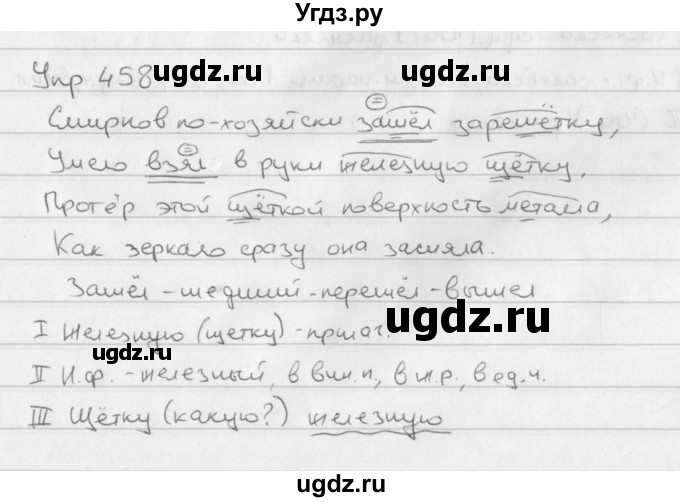 Угдз.ру
Упр 458
ugdz.ru
ugdz.ru
Смирнов по-хозяйски зашёл за решётку,
Умело взял в руки железную щётку,
Протёр этой щёткой поверхность метала,
Как зеркало сразу она засияла.
Зашёл - шедший - перешёл - вышел
I Железную (щетку) - прилаг.
ugdz.ru
II И.ф. - железный, в вин.п, в ж.р., в ед.ч.
III Щётку (какую?) железную
ugdz.ru